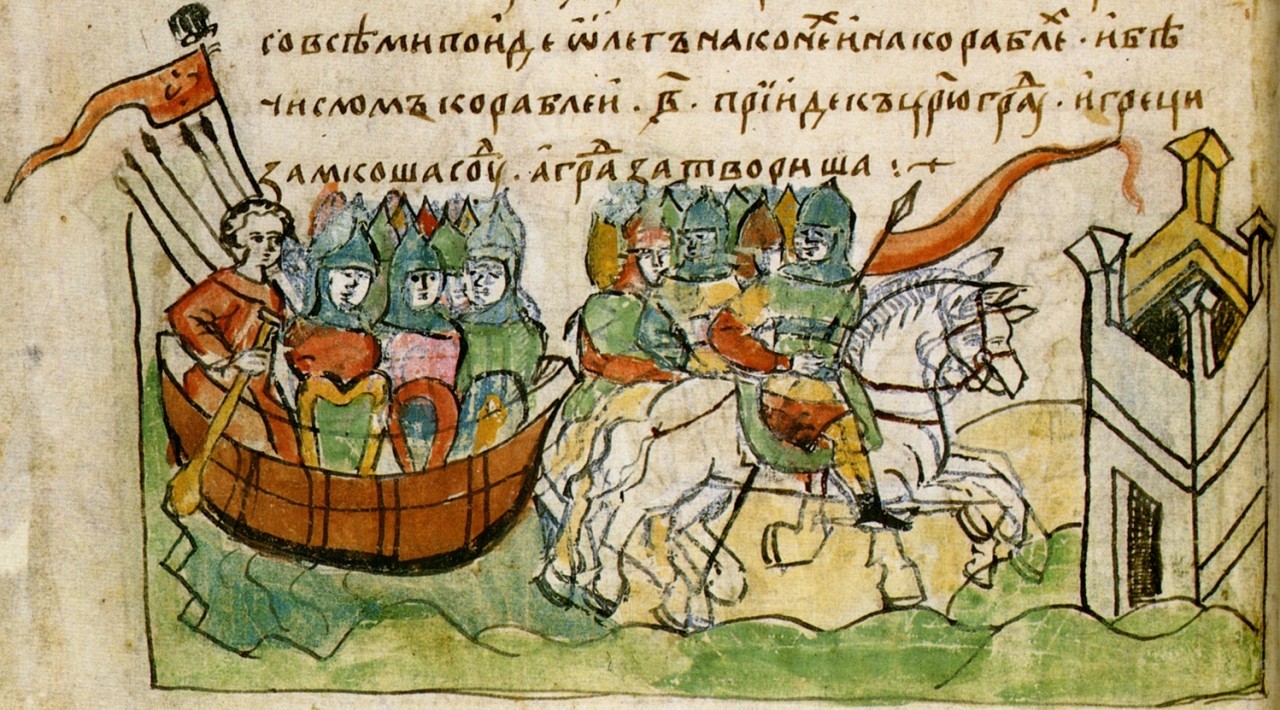 со всѣми поиде ѿлегъ на конехⷯ и на кораблехⷯ · и бѣ
числомъ кораблеи · в҃ · прїиде къ цр҃югра · и греци
замкоша соуⷣ · а граⷣ затвориша :·